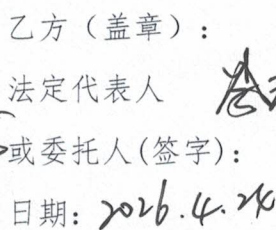 乙方（盖章）：
法定代表人
或委托人(签字)：
日期：2026.4.24